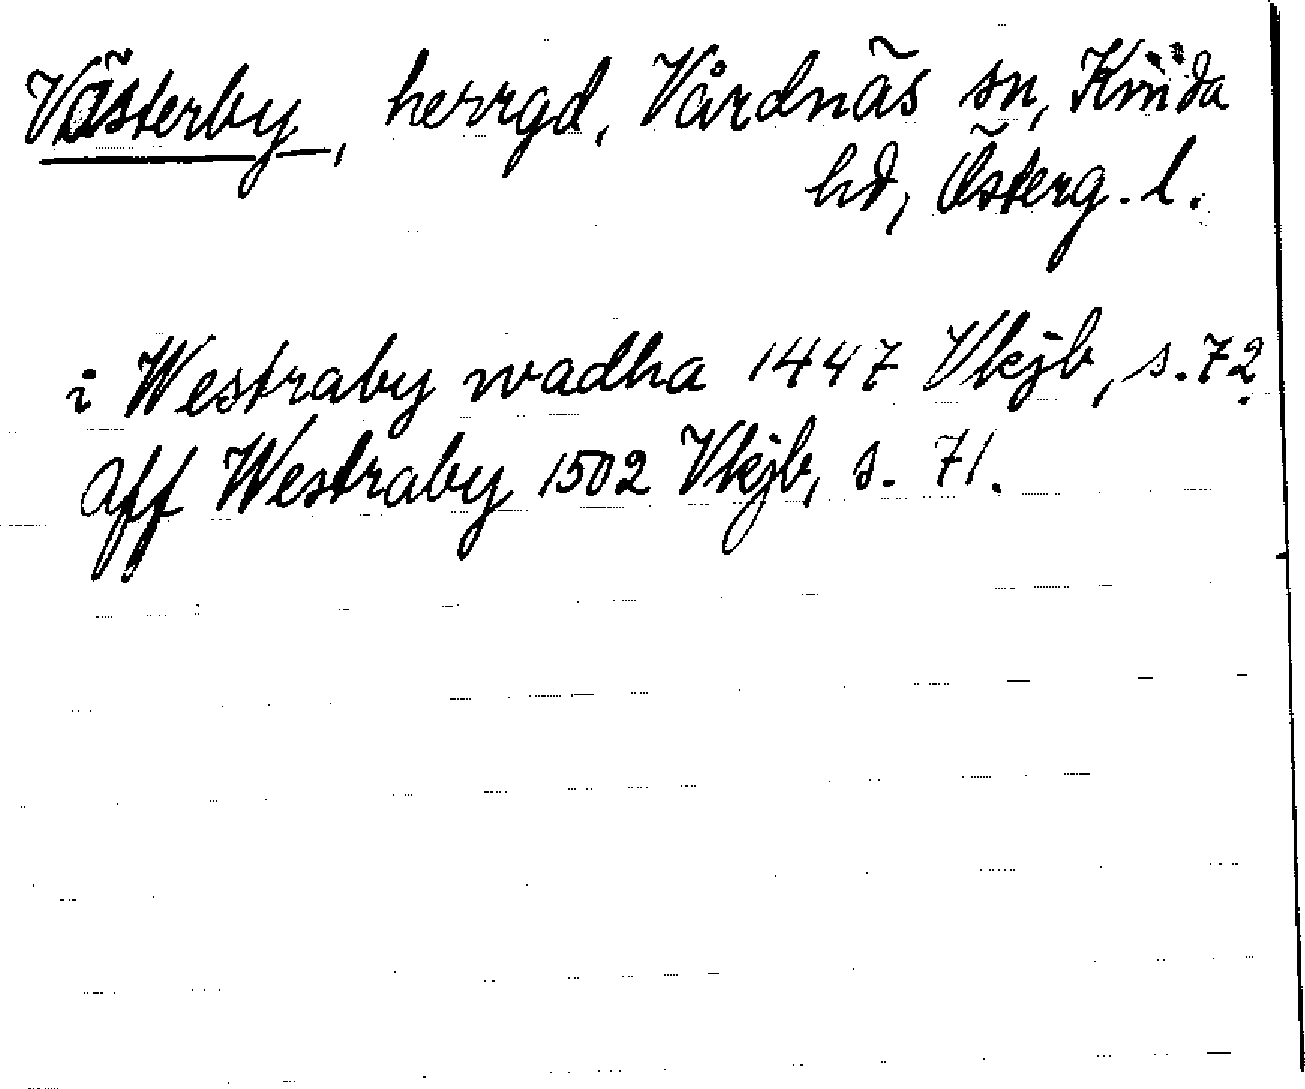 Västerby, herrgd, Vårdnäs sn, Kinda
hd, Österg. l.
i Westraby wadha 1447 Vkjb, s. 72.
Aff Westraby 1502 Vkjb, s. 71.